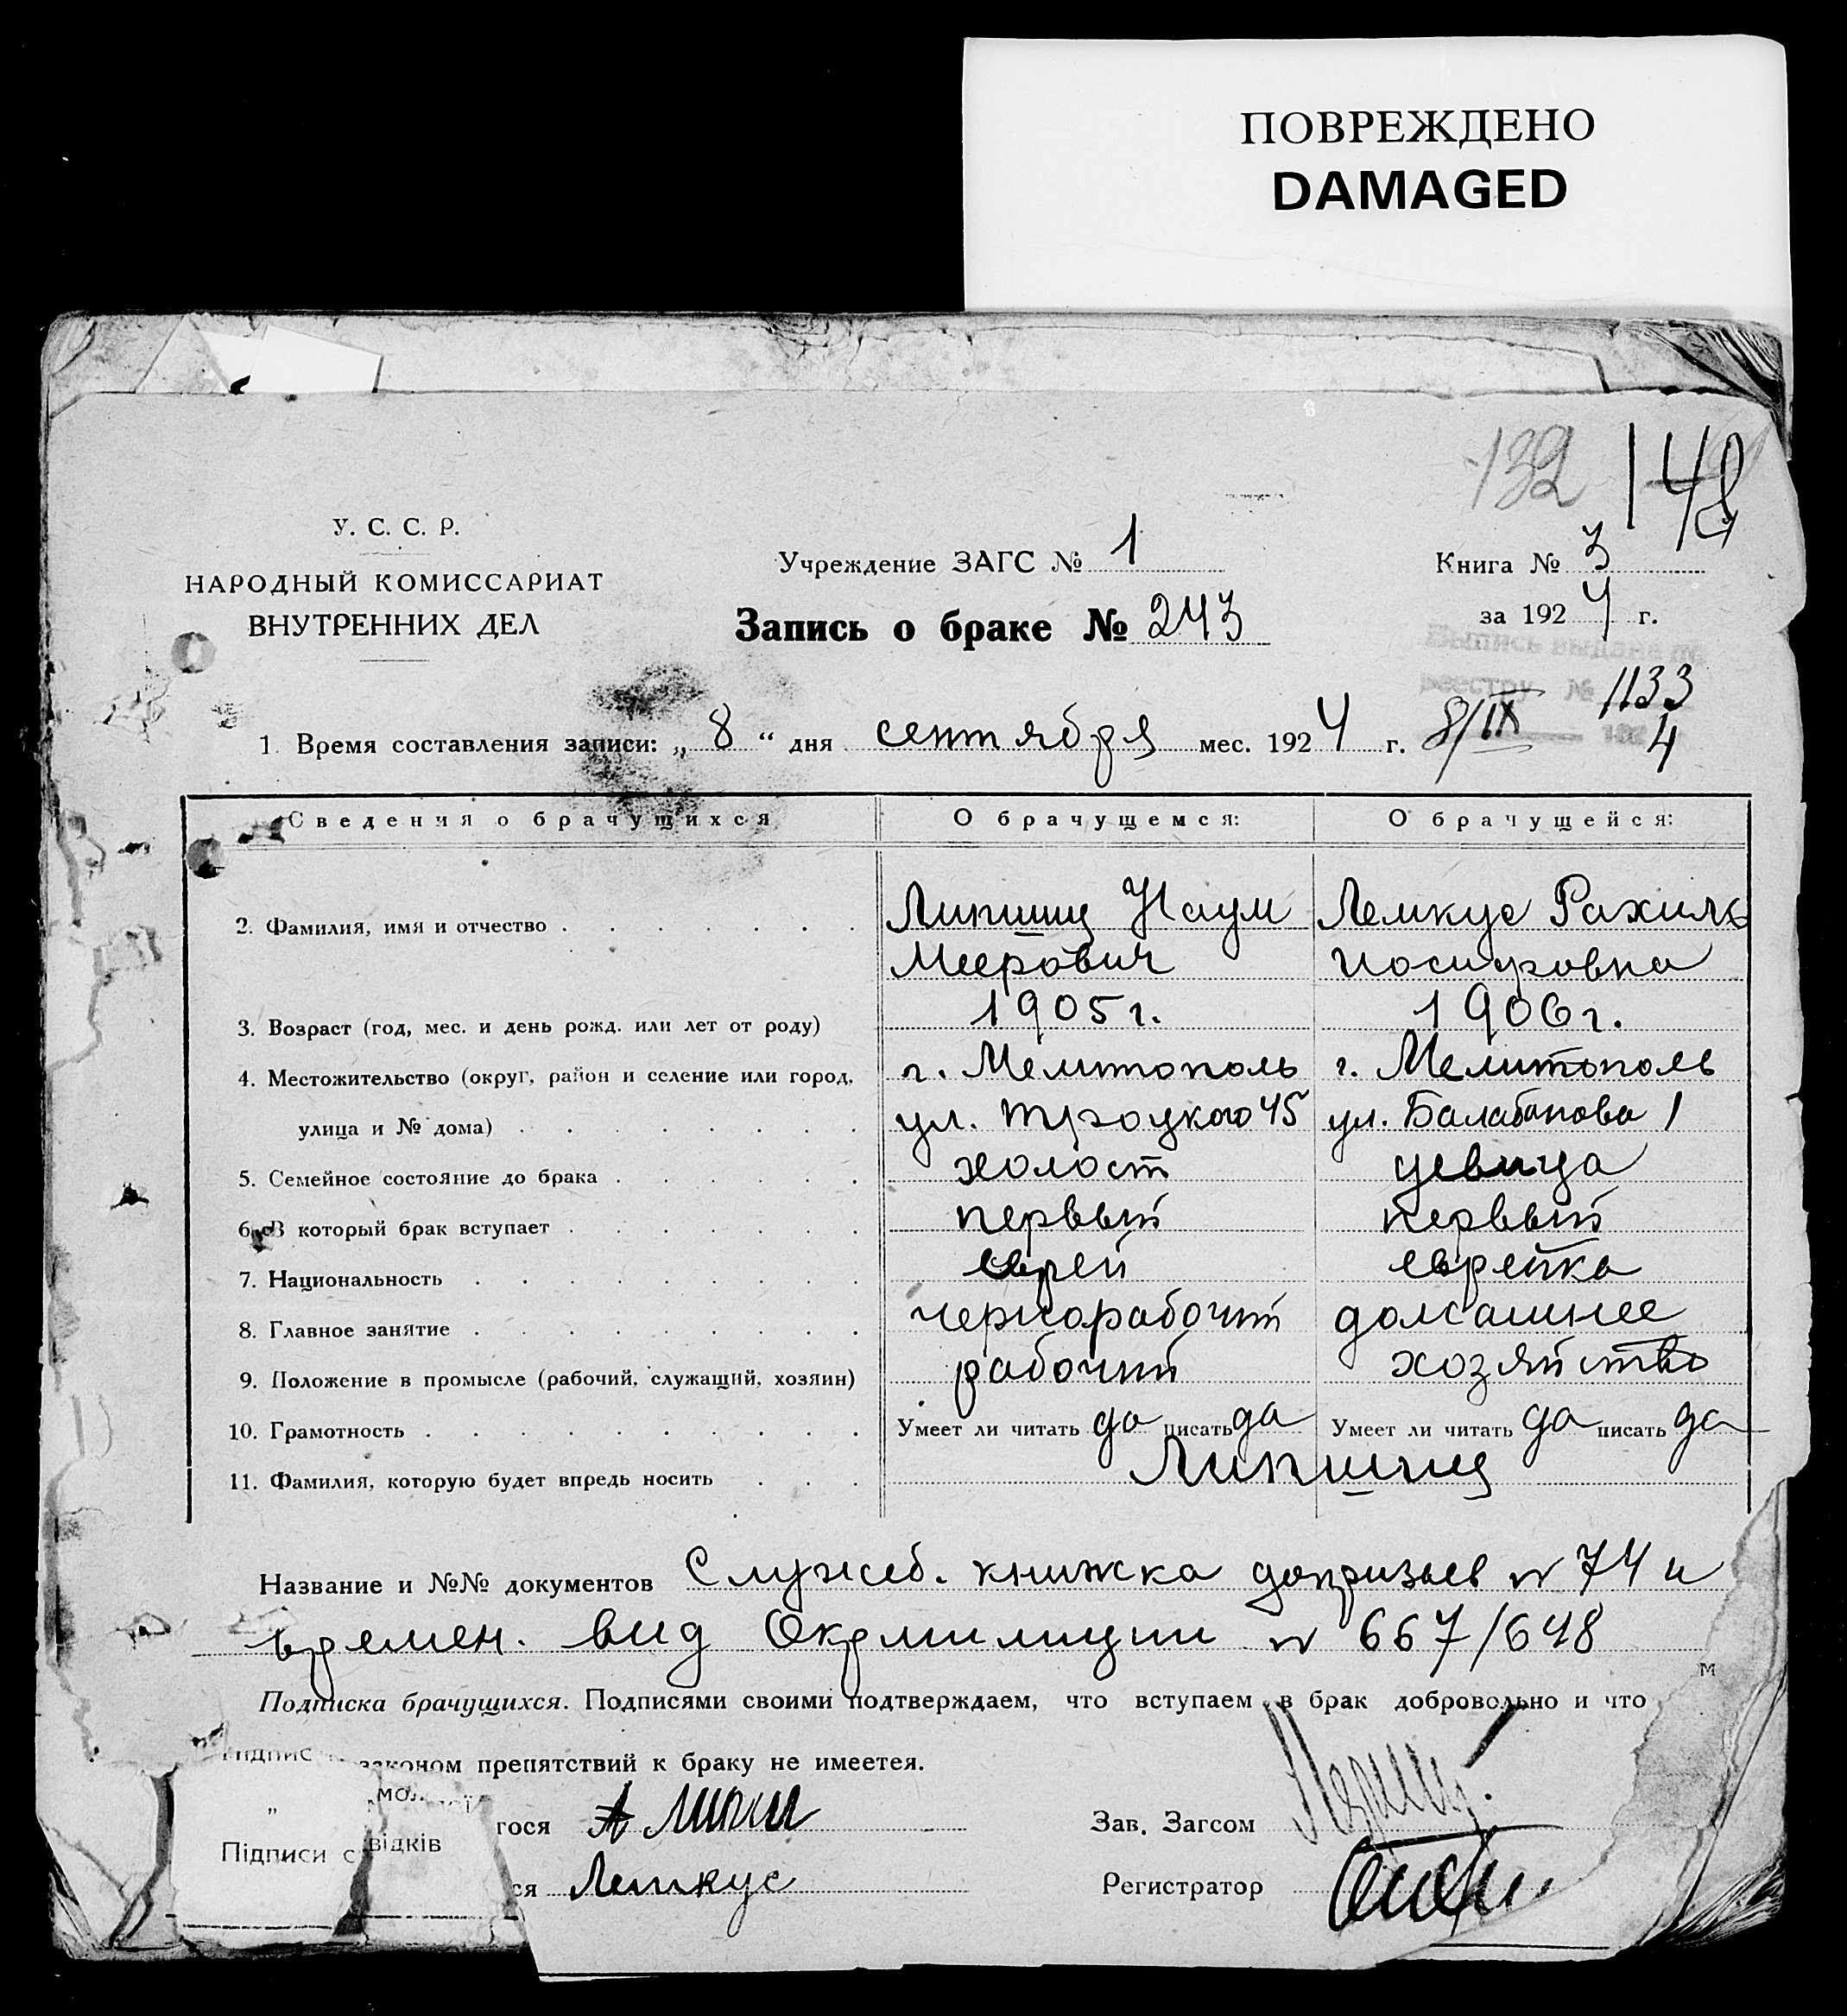 ПОВРЕЖДЕНО
DAMAGED
132 148
У. С. С. Р.
НАРОДНЫЙ КОМИССАРИАТ
ВНУТРЕННИХ ДЕЛ
Учреждение ЗАГС № 1
Запись о браке № 243
Книга № 3
за 1924 г.
Выпись выдана по
реестру № 1133
8/IX 192 4
1. Время составления записи: „ 8 “ дня сентября мес. 1924 г.
Сведения о брачущихся О брачущемся: О брачущейся:
2. Фамилия, имя и отчество Липшиц Наум Лемкус Рахиль
Меерович Иосифовна
3. Возраст (год, мес. и день рожд. или лет от роду) 1905 г. 1906 г.
4. Местожительство (округ, район и селение или город, г. Мелитополь г. Мелитополь
улица и № дома) ул. Троцкого 45 ул. Балабанова 1
5. Семейное состояние до брака холост девица
6. В который брак вступает первый первый
7. Национальность еврей еврейка
8. Главное занятие чернорабочий домашнее
9. Положение в промысле (рабочий, служащий, хозяин) рабочий хозяйство
10. Грамотность Умеет ли читать да писать да Умеет ли читать да писать да
11. Фамилия, которую будет впредь носить Липшиц
Название и №№ документов Служеб. книжка допризыв № 74 и
времен. вид Окрмилиции № 667/648
м
Подписка брачущихся. Подписями своими подтверждаем, что вступаем в брак добровольно и что
законом препятствий к браку не имеется.
мол
„ гося Зав. Загсом
Підписи с відків
ся Лемкус Регистратор